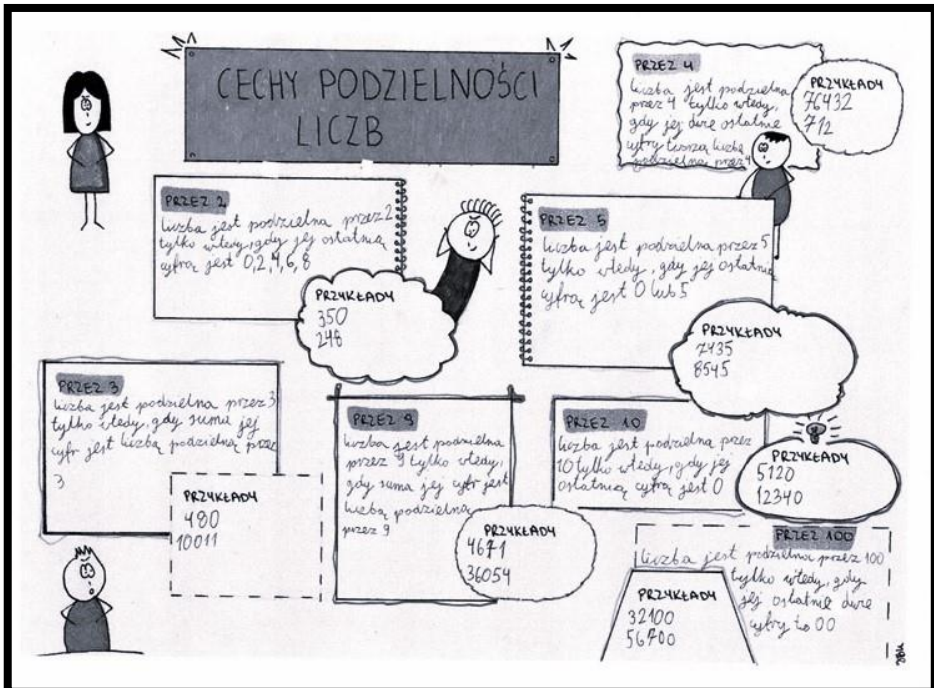 CECHY PODZIELNOŚCI
LICZB
PRZEZ 4
liczba jest podzielna
przez 4 tylko wtedy,
gdy jej dwie ostatnie
cyfry tworzą liczbę
podzielną przez 4
PRZYKŁADY
76432
712
PRZEZ 2
liczba jest podzielna przez 2
tylko wtedy, gdy jej ostatnią
cyfrą jest 0,2,4,6,8
PRZYKŁADY
350
248
PRZEZ 5
liczba jest podzielna przez 5
tylko wtedy, gdy jej ostatnią
cyfrą jest 0 lub 5
PRZYKŁADY
7435
8545
PRZEZ 3
liczba jest podzielna przez 3
tylko wtedy, gdy suma jej
cyfr jest liczbą podzielną przez
3
PRZYKŁADY
480
10011
PRZEZ 9
liczba jest podzielna
przez 9 tylko wtedy,
gdy suma jej cyfr jest
liczbą podzielną
przez 9
PRZYKŁADY
4671
36054
PRZEZ 10
liczba jest podzielna przez
10 tylko wtedy, gdy jej
ostatnią cyfrą jest 0
PRZYKŁADY
5120
12340
PRZEZ 100
liczba jest podzielna przez 100
tylko wtedy, gdy
jej ostatnie dwie
cyfry to 00
PRZYKŁADY
32100
56700